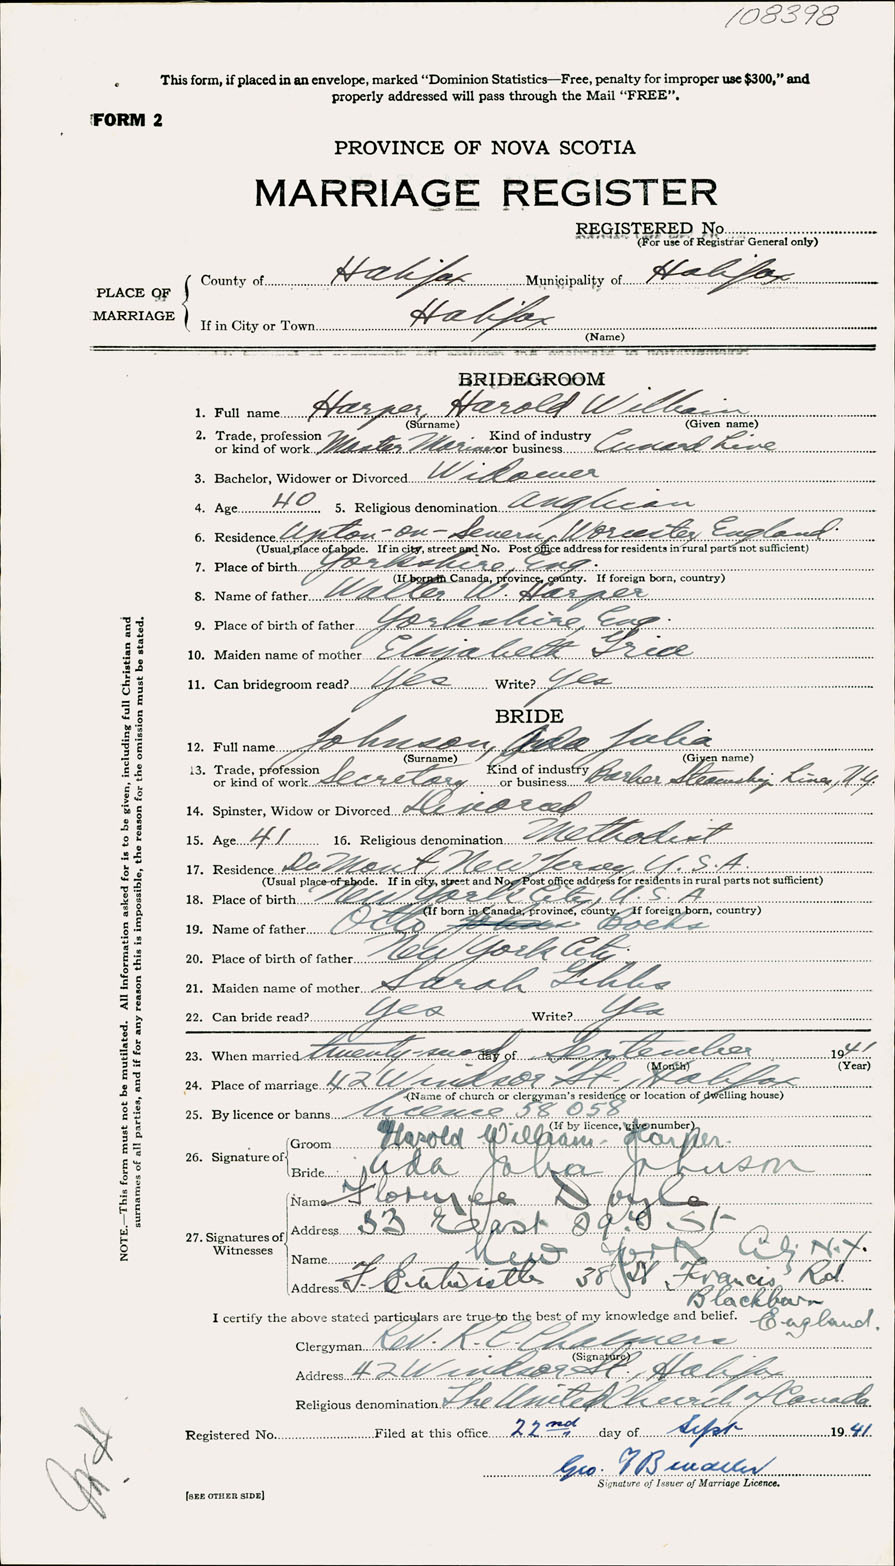 108398
This form, if placed in an envelope, marked “Dominion Statistics—Free, penalty for improper use $300,” and
properly addressed will pass through the Mail “FREE”.
FORM 2
PROVINCE OF NOVA SCOTIA
MARRIAGE REGISTER
REGISTERED No.
(For use of Registrar General only)
PLACE OF MARRIAGE
County of Halifax Municipality of Halifax
If in City or Town Halifax
(Name)
BRIDEGROOM
1. Full name Harper, Harold William
(Surname) (Given name)
2. Trade, profession or kind of work Master Mariner Kind of industry or business Cunard Line
3. Bachelor, Widower or Divorced Widower
4. Age 40 5. Religious denomination Anglican
6. Residence Upton-on-Severn, Worcester, England
(Usual place of abode. If in city, street and No. Post office address for residents in rural parts not sufficient)
7. Place of birth Yorkshire, Eng.
(If born in Canada, province, county. If foreign born, country)
8. Name of father Walter W. Harper
9. Place of birth of father Yorkshire, Eng.
10. Maiden name of mother Elizabeth Grice
11. Can bridegroom read? Yes Write? Yes
BRIDE
12. Full name Johnson, Ada Julia
(Surname) (Given name)
13. Trade, profession or kind of work Secretary Kind of industry or business Barber Steamship Lines, N.Y.
14. Spinster, Widow or Divorced Divorced
15. Age 41 16. Religious denomination Methodist
17. Residence DuMont, New Jersey, U.S.A.
(Usual place of abode. If in city, street and No. Post office address for residents in rural parts not sufficient)
18. Place of birth New York City, U.S.A
(If born in Canada, province, county. If foreign born, country)
19. Name of father Otto Bocks
20. Place of birth of father New York City
21. Maiden name of mother Sarah Gibbs
22. Can bride read? Yes Write? Yes
23. When married twenty-second day of September 1941
(Month) (Year)
24. Place of marriage 42 Windsor St., Halifax
(Name of church or clergyman's residence or location of dwelling house)
25. By licence or banns licence 58058
(If by licence, give number)
26. Signature of Groom Harold William Harper.
Bride Ada Julia Johnson
27. Signatures of Witnesses
Name Florence Doyle
Address 33 East St
New York City N.Y.
Name
Address F. Entwistle 38 St Francis' Rd.
Blackburn
England.
I certify the above stated particulars are true to the best of my knowledge and belief.
Clergyman Rev. R. C. Chalmers
(Signature)
Address 42 Windsor St, Halifax
Religious denomination The United Church of Canada
Registered No. Filed at this office 22nd day of Sept 1941.
Geo.
Signature of Issuer of Marriage Licence.
[SEE OTHER SIDE]
NOTE.—This form must not be mutilated. All Information asked for is to be given, including full Christian and
surnames of all parties, and if for any reason this is impossible, the reason for the omission must be stated.